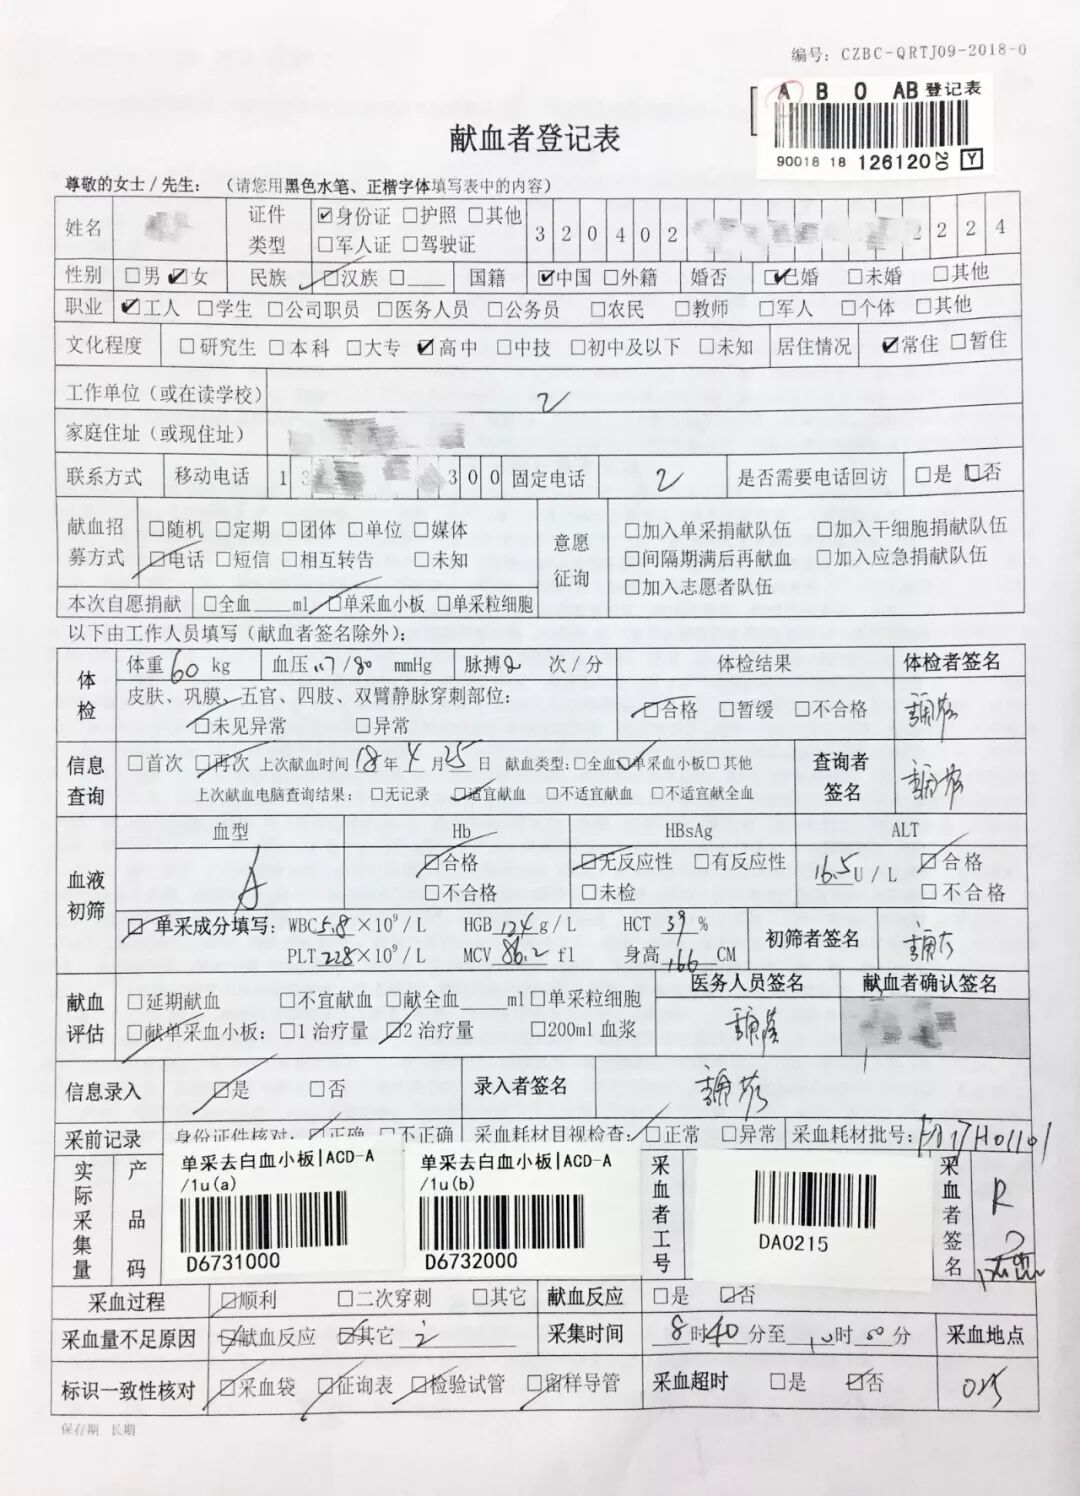 编号：CZBC-QRTJ09-2018-0
A B O AB 登记表
90018 18 126120 20 Y
献血者登记表
尊敬的女士/先生：（请您用黑色水笔、正楷字体填写表中的内容）
姓名 证件类型 ☑身份证 □护照 □其他 □军人证 □驾驶证 320402 2224
性别 □男 ☑女 民族 ☑汉族 □____ 国籍 ☑中国 □外籍 婚否 ☑已婚 □未婚 □其他
职业 ☑工人 □学生 □公司职员 □医务人员 □公务员 □农民 □教师 □军人 □个体 □其他
文化程度 □研究生 □本科 □大专 ☑高中 □中技 □初中及以下 □未知 居住情况 ☑常住 □暂住
工作单位（或在读学校）
家庭住址（或现住址）
联系方式 移动电话 13 300 固定电话 是否需要电话回访 □是 ☑否
献血招募方式 □随机 □定期 □团体 □单位 □媒体
☑电话 □短信 □相互转告 □未知
意愿征询 □加入单采捐献队伍 □加入干细胞捐献队伍
□间隔期满后再献血 □加入应急捐献队伍
□加入志愿者队伍
本次自愿捐献 □全血____ml ☑单采血小板 □单采粒细胞
以下由工作人员填写（献血者签名除外）：
体检 体重60kg 血压117/80 mmHg 脉搏 次/分 体检结果 体检者签名
皮肤、巩膜、五官、四肢、双臂静脉穿刺部位：
☑未见异常 □异常 ☑合格 □暂缓 □不合格
信息查询 □首次 ☑再次 上次献血时间18年4月25日 献血类型：□全血 ☑单采血小板 □其他 查询者签名
上次献血电脑查询结果：□无记录 ☑适宜献血 □不适宜献血 □不适宜献全血
血液初筛 血型 Hb HBsAg ALT
A ☑合格 □不合格 ☑无反应性 □有反应性 □未检 16.5U/L ☑合格 □不合格
☑单采成分填写：WBC5.8×10⁹/L HGB124g/L HCT 39% 初筛者签名
PLT228×10⁹/L MCV86.2fl 身高166CM
献血评估 □延期献血 □不宜献血 □献全血____ml □单采粒细胞 医务人员签名 献血者确认签名
☑献单采血小板：□1治疗量 ☑2治疗量 □200ml血浆
信息录入 ☑是 □否 录入者签名
采前记录 身份证件核对：☑正确 □不正确 采血耗材目视检查：☑正常 □异常 采血耗材批号：
实际采集量 产品码 单采去白血小板|ACD-A/1u(a) D6731000
单采去白血小板|ACD-A/1u(b) D6732000
采血者工号 DA0215 采血者签名
采血过程 ☑顺利 □二次穿刺 □其它 献血反应 □是 ☑否
采血量不足原因 ☑献血反应 ☑其它 采集时间 8时40分至10时00分 采血地点
标识一致性核对 ☑采血袋 ☑征询表 ☑检验试管 ☑留样导管 采血超时 □是 ☑否
保存期 长期